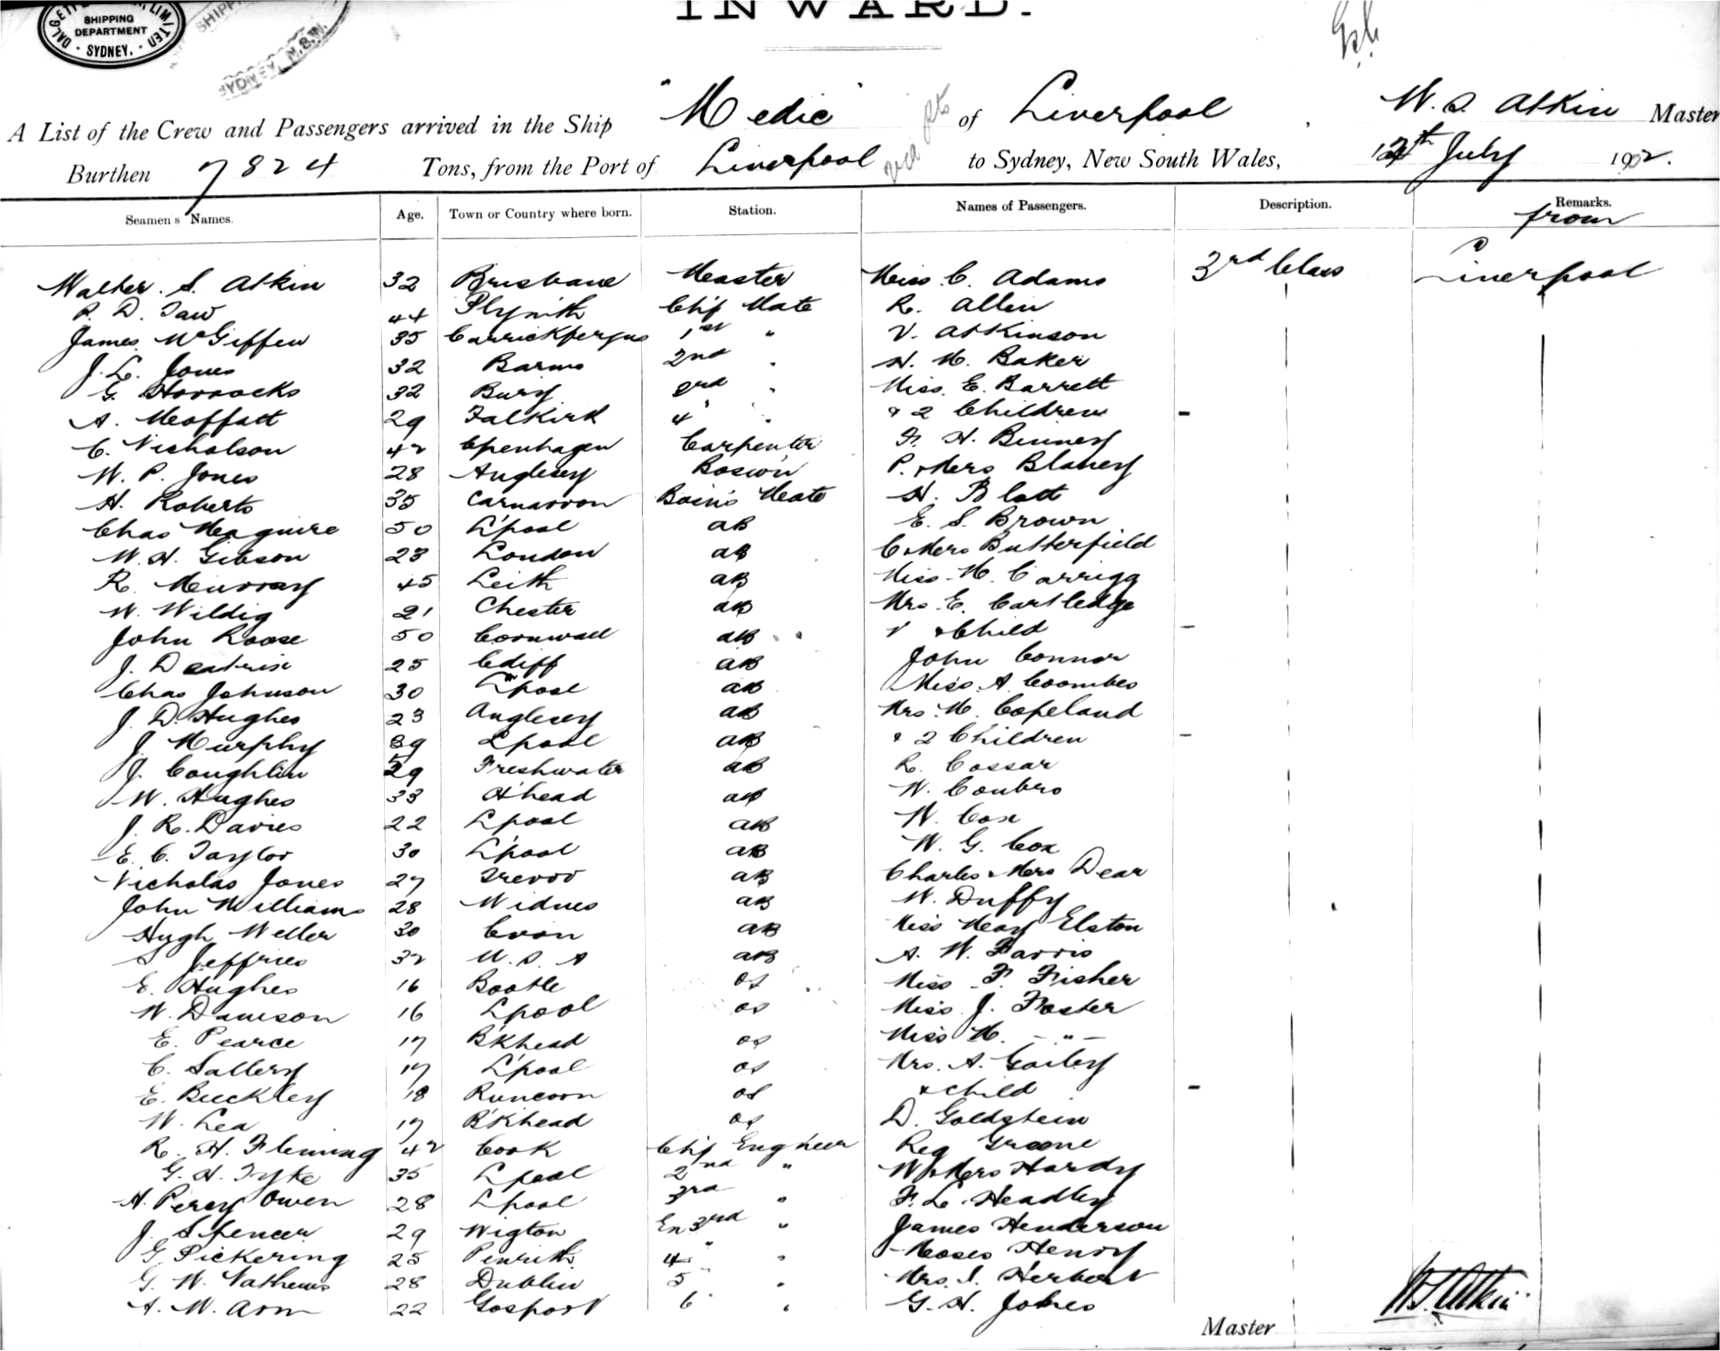 LIMITED
SHIPPING
DEPARTMENT
SYDNEY.
SYDNEY, N.S.W.
INWARD.
A List of the Crew and Passengers arrived in the Ship "Medic" of Liverpool, W. S. Atkin Master
Burthen 7824 Tons, from the Port of Liverpool to Sydney, New South Wales, 12th July 1902.
Seamens Names. Age. Town or Country where born. Station. Names of Passengers. Description. Remarks.
from
Walter. S. Atkin 32 Brisbane Master Miss. C. Adams 3rd Class Liverpool
R. D. Taw 44 Plym'th Chf Mate R. Allen
James McGiffen 35 Carrickfergus 1st " V. Atkinson
J. L. Jones 32 2nd " H. M. Baker
G. Horrocks 32 Bury 3rd " Miss. E. Barrett
A. Moffatt 29 Falkirk 4" " & 2 Children -
C. Nicholson 42 Cpenhagen Carpenter F. H. Binney
W. P. Jones 28 Anglesey Bosw'n P. & Mrs Blaney
H. Roberts 35 Carnarvon Bosn's Mate H. Blatt
Chas Maguire 50 L'pool AB E. S. Brown
W. H. Gibson 23 London AB C & Mrs Butterfield
R. Murray 45 Leith AB Miss. M. Carrigg
W. Wildig 21 Chester AB Mrs. E. Cartledge
John Roose 50 Cornwall AB " & Child -
J. 25 Cdiff AB John Connor
Chas Johnson 30 L'pool AB Miss. A. Coombes
J. D. Hughes 23 Anglesey AB Mrs. M. Copeland
J. Murphy 39 L'pool AB " 2 Children -
J. Coughlin 29 Freshwater AB R. Cossar
W. Hughes 33 H'head AB W. Coubro
J. R. Davies 22 L'pool AB W. Cox
E. C. Taylor 30 L'pool AB W. G. Cox
Nicholas Jones 27 Trevor AB Charles & Mrs Dear
John Williams 28 Widnes AB W. Duffy
Hugh Weller 30 AB Miss Mary Elston
S Jeffries 32 U. S. A AB A. W. Farris
E. Hughes 16 Bootle OS Miss F. Fisher
W. Dawson 16 L'pool OS Miss J. Foster
E. Pearce 17 B'Khead OS Miss M. - " -
C. Sallery 17 L'pool OS Mrs. A. Gailey
E. Buckley 18 Runcorn OS & Child -
W. Lea 17 B'Khead OS D. Goldstein
R. H. Fleming 42 Cork Chf Engineer Reg Greene
G. H. Tyke 35 L'pool 2nd " W & Mrs Hardy
A. Percy Owen 28 L'pool 3rd " F. L. Headley
J. Spencer 29 Wigton En 3rd " James Henderson
G. Pickering 25 Penrith 4" " Moses Henry
G. W. Mathews 28 Dublin 5 " Mrs. S. Herbert
A. W. Arm 22 Gosport 6 " G. H. Jones
Master W S Atkin